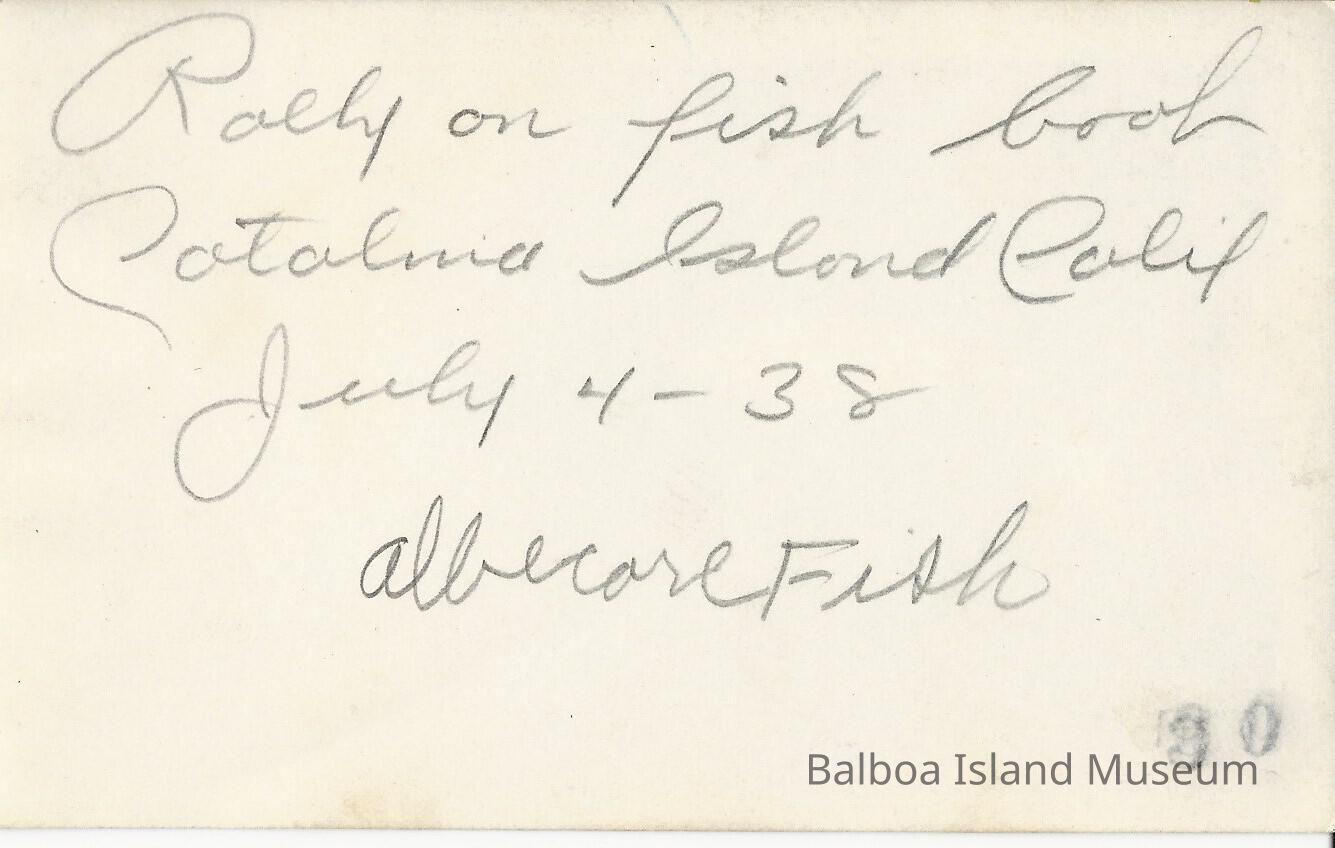 Rolly on fish boat
Catalina Island Calif
July 4-38
albecore Fish
30
Balboa Island Museum